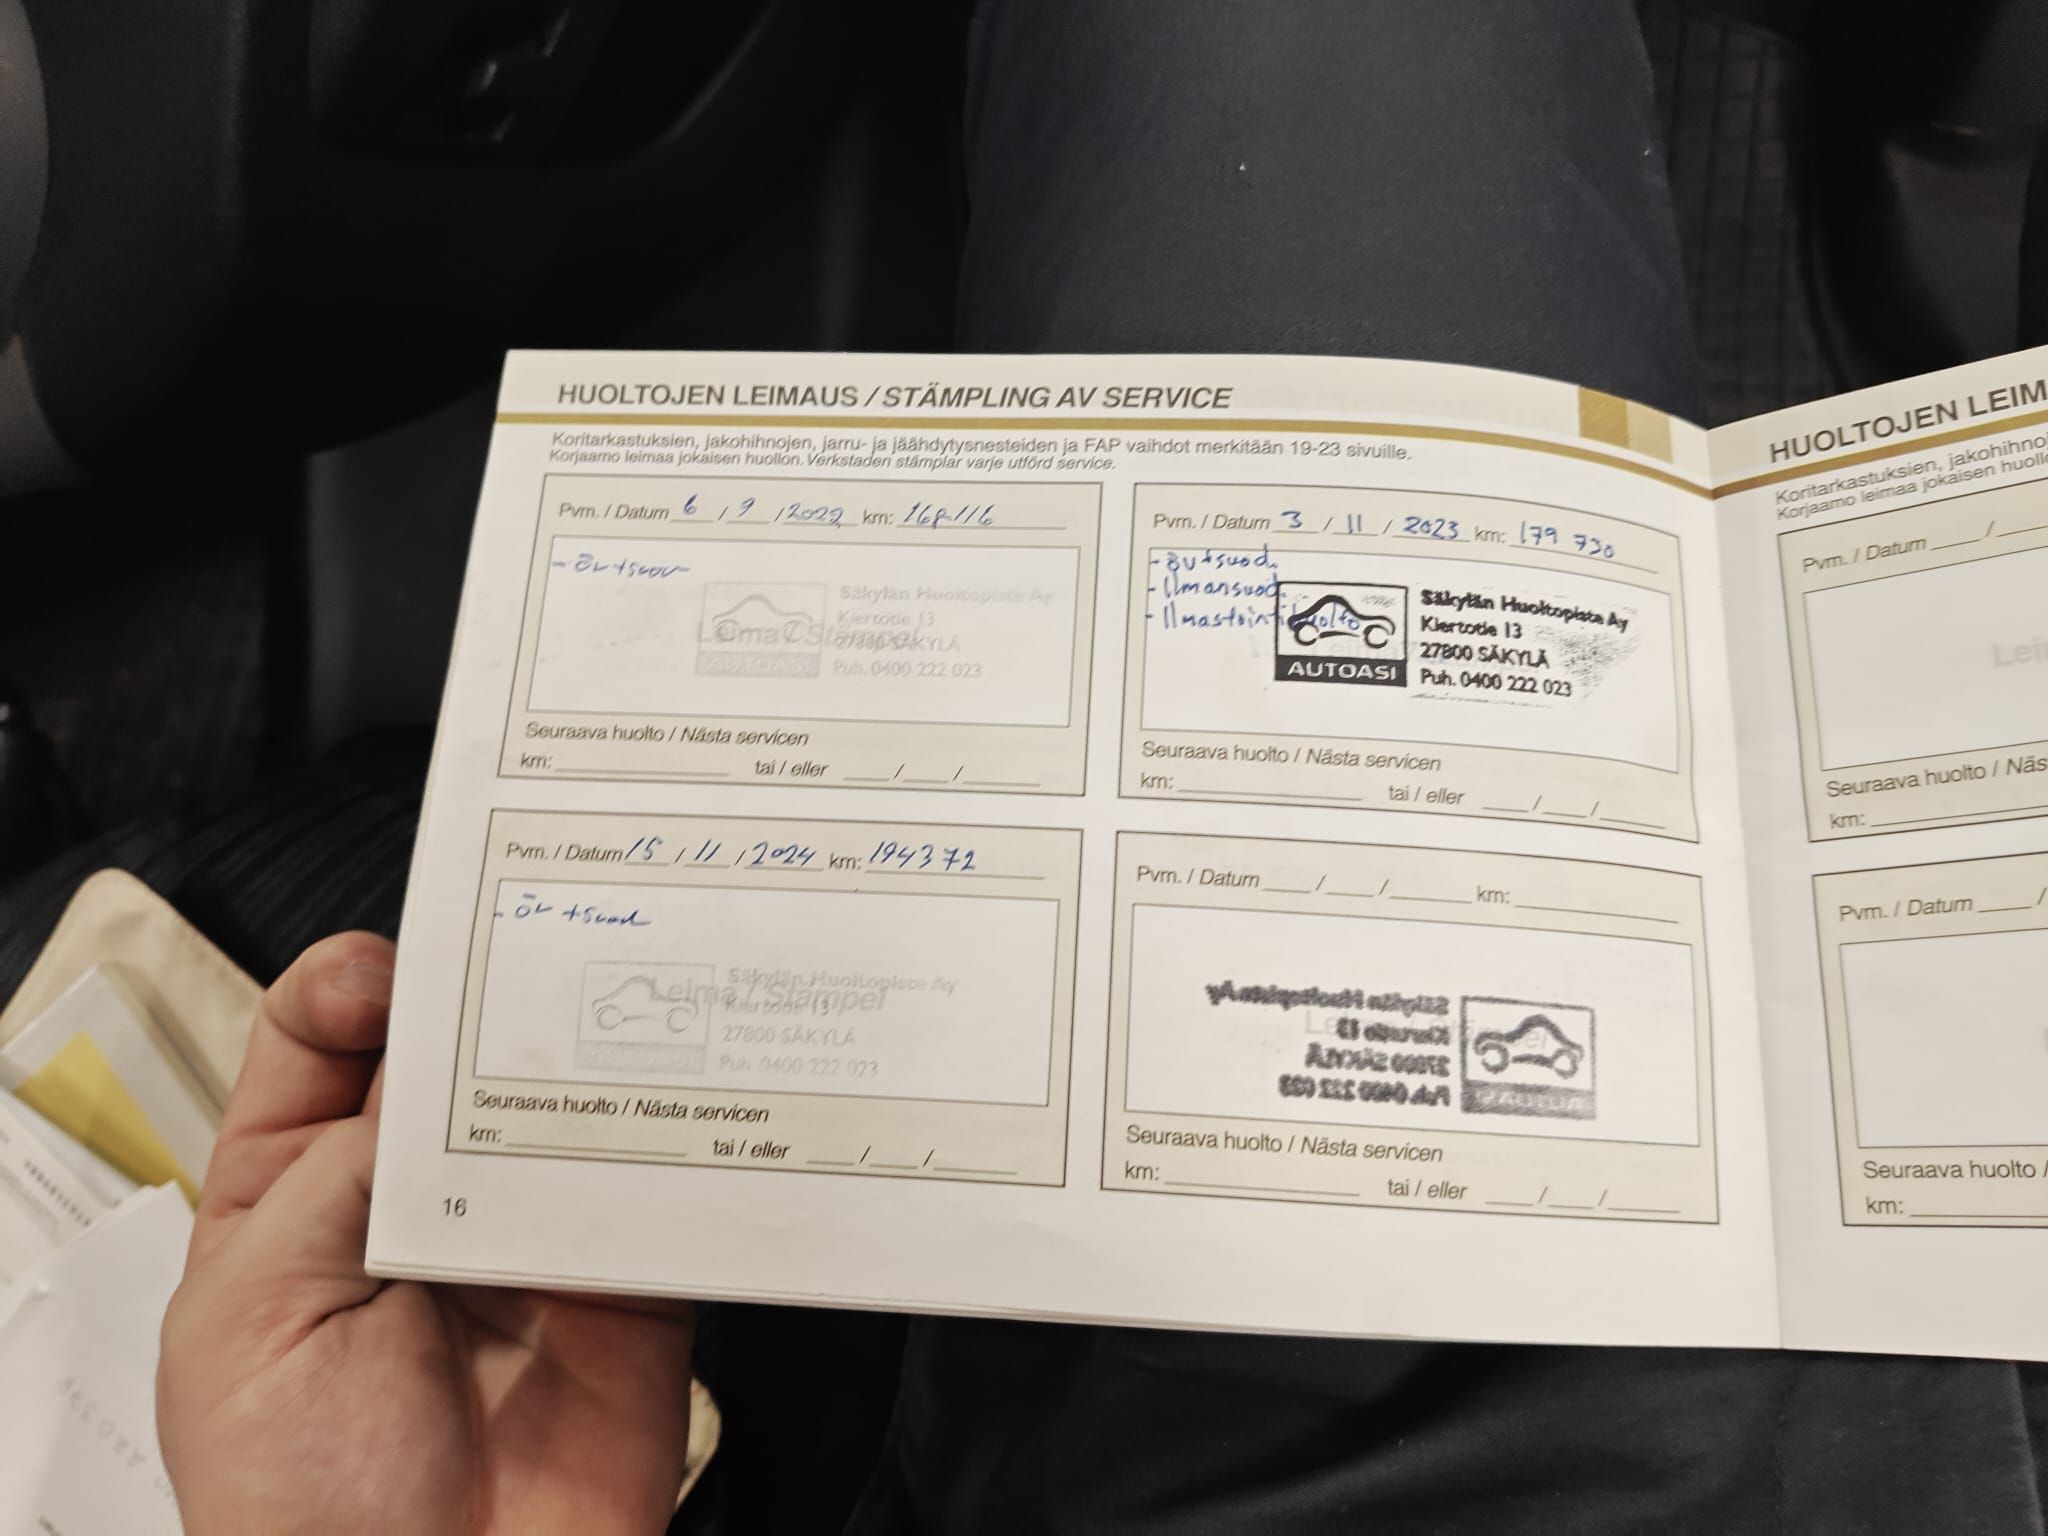 HUOLTOJEN LEIMAUS / STÄMPLING AV SERVICE
Koritarkastuksien, jakohihnojen, jarru- ja jäähdytysnesteiden ja FAP vaihdot merkitään 19-23 sivuille.
Korjaamo leimaa jokaisen huollon. Verkstaden stämplar varje utförd service.
Pvm. / Datum 6 / 9 / 2022 km: 168116
Leima / Stämpel
Säkylän Huoltopiste Ay
Kiertotie 13
27800 SÄKYLÄ
AUTOASI Puh. 0400 222 023
Seuraava huolto / Nästa servicen
km: tai / eller / /
Pvm. / Datum 3 / 11 / 2023 km: 179 730
- öv+suod.
- Ilmansuod.
- Ilmastointihuolto
Säkylän Huoltopiste Ay
Kiertotie 13
27800 SÄKYLÄ
AUTOASI Puh. 0400 222 023
Seuraava huolto / Nästa servicen
km: tai / eller / /
Pvm. / Datum 15 / 11 / 2024 km: 194372
- öv +suod
Leima / Stämpel
Säkylän Huoltopiste Ay
Kiertotie 13
27800 SÄKYLÄ
Puh. 0400 222 023
Seuraava huolto / Nästa servicen
km: tai / eller / /
Pvm. / Datum / / km:
Säkylän Huoltopiste Ay
Kiertotie 13
27800 SÄKYLÄ
Puh. 0400 222 023
Seuraava huolto / Nästa servicen
km: tai / eller / /
16
HUOLTOJEN LEIM
Koritarkastuksien, jakohihno
Korjaamo leimaa jokaisen huoll
Pvm. / Datum /
Lei
Seuraava huolto / Näs
km:
Pvm. / Datum /
Seuraava huolto /
km: